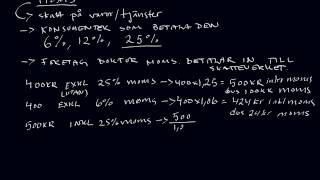 MOMS
↳ skatt på varor/tjänster
→ KONSUMENTEN SOM BETALAR DEN
6%, 12%, 25%
→ FÖRETAG DOKTOR MOMS. BETALAR IN TILL
SKATTEVERKET.
400KR EXKL 25% MOMS → 400x1,25 = 500KR inkl moms
(UTAN) dvs 100KR moms
400 EXKL 6% moms → 400x1,06 = 424 kr inkl moms
dvs 24 kr moms
500KR INKL 25% MOMS → 500
1,